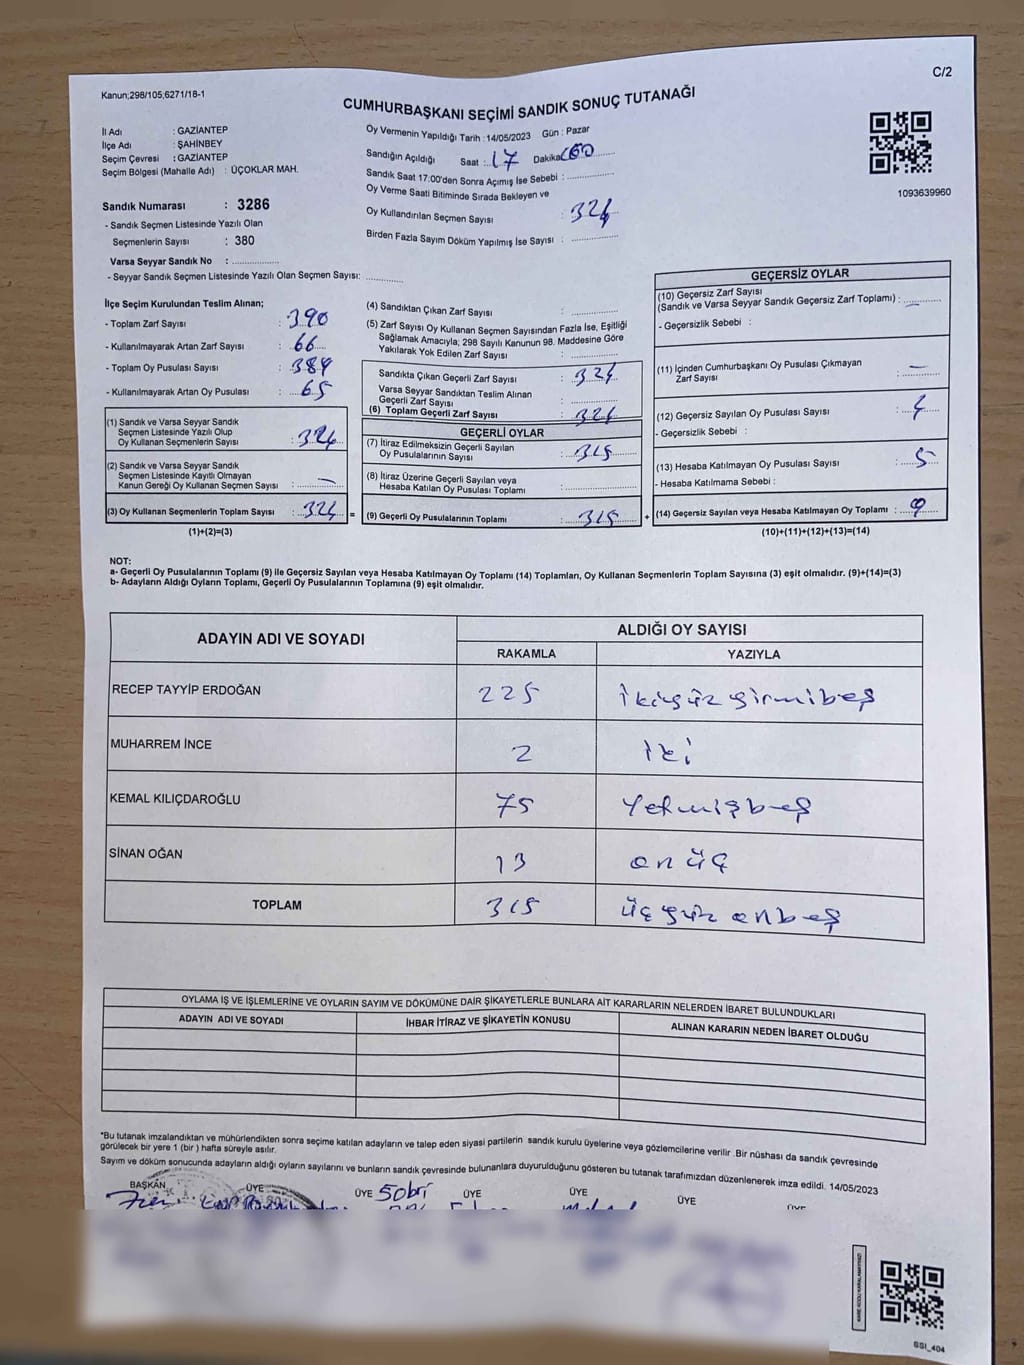 C/2
Kanun;298/105;6271/18-1
CUMHURBAŞKANI SEÇİMİ SANDIK SONUÇ TUTANAĞI
İl Adı : GAZİANTEP
İlçe Adı : ŞAHİNBEY
Seçim Çevresi : GAZİANTEP
Seçim Bölgesi (Mahalle Adı) : ÜÇOKLAR MAH.
Sandık Numarası : 3286
- Sandık Seçmen Listesinde Yazılı Olan
Seçmenlerin Sayısı : 380
Varsa Seyyar Sandık No : ................
- Seyyar Sandık Seçmen Listesinde Yazılı Olan Seçmen Sayısı: ............
Oy Vermenin Yapıldığı Tarih : 14/05/2023 Gün : Pazar
Sandığın Açıldığı Saat : 17 Dakika
Sandık Saat 17:00'den Sonra Açımış İse Sebebi : ................
Oy Verme Saati Bitiminde Sırada Bekleyen ve
Oy Kullandırılan Seçmen Sayısı : 324
Birden Fazla Sayım Döküm Yapılmış İse Sayısı : ................
1093639960
İlçe Seçim Kurulundan Teslim Alınan;
- Toplam Zarf Sayısı : 390
- Kullanılmayarak Artan Zarf Sayısı : 66
- Toplam Oy Pusulası Sayısı : 389
- Kullanılmayarak Artan Oy Pusulası : 65
(1) Sandık ve Varsa Seyyar Sandık
Seçmen Listesinde Yazılı Olup
Oy Kullanan Seçmenlerin Sayısı : 324
(2) Sandık ve Varsa Seyyar Sandık
Seçmen Listesinde Kayıtlı Olmayan
Kanun Gereği Oy Kullanan Seçmen Sayısı : —
(3) Oy Kullanan Seçmenlerin Toplam Sayısı : 324 =
(1)+(2)=(3)
(4) Sandıktan Çıkan Zarf Sayısı : ............
(5) Zarf Sayısı Oy Kullanan Seçmen Sayısından Fazla İse, Eşitliği
Sağlamak Amacıyla; 298 Sayılı Kanunun 98. Maddesine Göre
Yakılarak Yok Edilen Zarf Sayısı : ............
Sandıkta Çıkan Geçerli Zarf Sayısı : 324
Varsa Seyyar Sandıktan Teslim Alınan
Geçerli Zarf Sayısı : ............
(6) Toplam Geçerli Zarf Sayısı : 324
GEÇERLİ OYLAR
(7) İtiraz Edilmeksizin Geçerli Sayılan
Oy Pusulalarının Sayısı : 315
(8) İtiraz Üzerine Geçerli Sayılan veya
Hesaba Katılan Oy Pusulası Toplamı : ............
(9) Geçerli Oy Pusulalarının Toplamı : 315 +
GEÇERSİZ OYLAR
(10) Geçersiz Zarf Sayısı
(Sandık ve Varsa Seyyar Sandık Geçersiz Zarf Toplamı) : —
- Geçersizlik Sebebi :
(11) İçinden Cumhurbaşkanı Oy Pusulası Çıkmayan
Zarf Sayısı : —
(12) Geçersiz Sayılan Oy Pusulası Sayısı : 4
- Geçersizlik Sebebi :
(13) Hesaba Katılmayan Oy Pusulası Sayısı : 5
- Hesaba Katılmama Sebebi :
(14) Geçersiz Sayılan veya Hesaba Katılmayan Oy Toplamı : 9
(10)+(11)+(12)+(13)=(14)
NOT:
a- Geçerli Oy Pusulalarının Toplamı (9) ile Geçersiz Sayılan veya Hesaba Katılmayan Oy Toplamı (14) Toplamları, Oy Kullanan Seçmenlerin Toplam Sayısına (3) eşit olmalıdır. (9)+(14)=(3)
b- Adayların Aldığı Oyların Toplamı, Geçerli Oy Pusulalarının Toplamına (9) eşit olmalıdır.
ADAYIN ADI VE SOYADI ALDIĞI OY SAYISI
RAKAMLA YAZIYLA
RECEP TAYYİP ERDOĞAN 225 ikiyüz yirmibeş
MUHARREM İNCE 2 iki
KEMAL KILIÇDAROĞLU 75 Yetmişbeş
SİNAN OĞAN 13 on üç
TOPLAM 315 üç yüz onbeş
OYLAMA İŞ VE İŞLEMLERİNE VE OYLARIN SAYIM VE DÖKÜMÜNE DAİR ŞİKAYETLERLE BUNLARA AİT KARARLARIN NELERDEN İBARET BULUNDUKLARI
ADAYIN ADI VE SOYADI İHBAR İTİRAZ VE ŞİKAYETİN KONUSU ALINAN KARARIN NEDEN İBARET OLDUĞU
*Bu tutanak imzalandıktan ve mühürlendikten sonra seçime katılan adayların ve talep eden siyasi partilerin sandık kurulu üyelerine veya gözlemcilerine verilir .Bir nüshası da sandık çevresinde
görülecek bir yere 1 (bir ) hafta süreyle asılır.
Sayım ve döküm sonucunda adayların aldığı oyların sayılarını ve bunların sandık çevresinde bulunanlara duyurulduğunu gösteren bu tutanak tarafımızdan düzenlenerek imza edildi. 14/05/2023
BAŞKAN ÜYE ÜYE Sobri ÜYE ÜYE ÜYE ÜYE
GSI_404